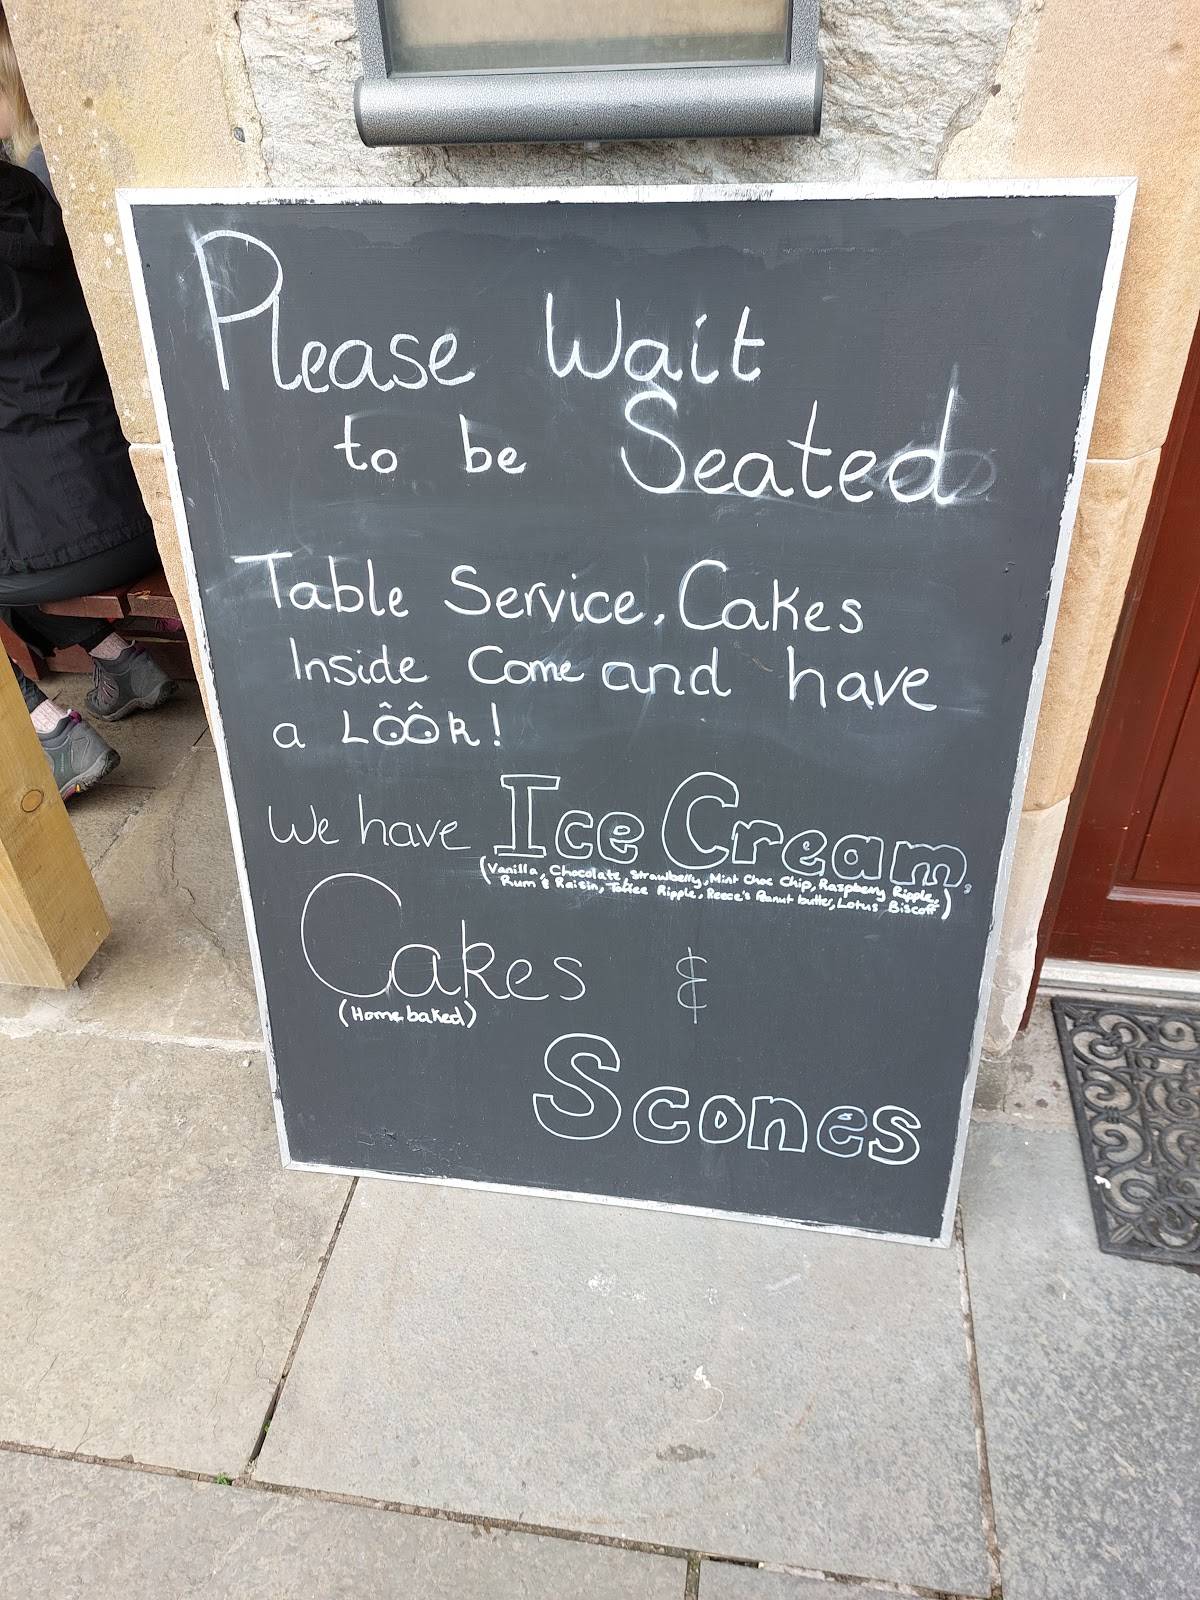 Please Wait
to be Seated
Table Service, Cakes
Inside Come and have
a LÔÔK!
We have Ice Cream,
(Vanilla, Chocolate, Strawberry, Mint Choc Chip, Raspberry Ripple,
Rum & Raisin, Toffee Ripple, Reece's Peanut butter, Lotus Biscoff)
Cakes &
(Home baked)
Scones